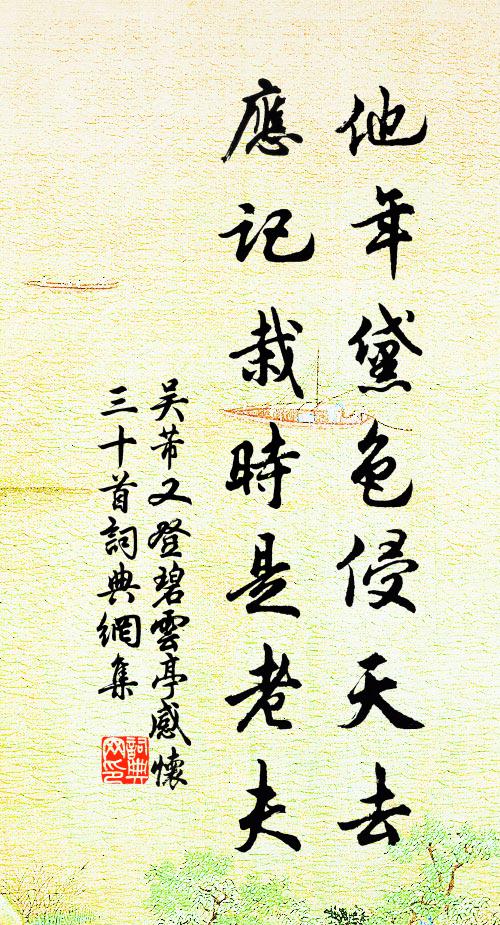 他年黛色侵天去
應記栽時是老夫
吳芾又登碧雲亭感懷
三十首詞典網集
詞典網印